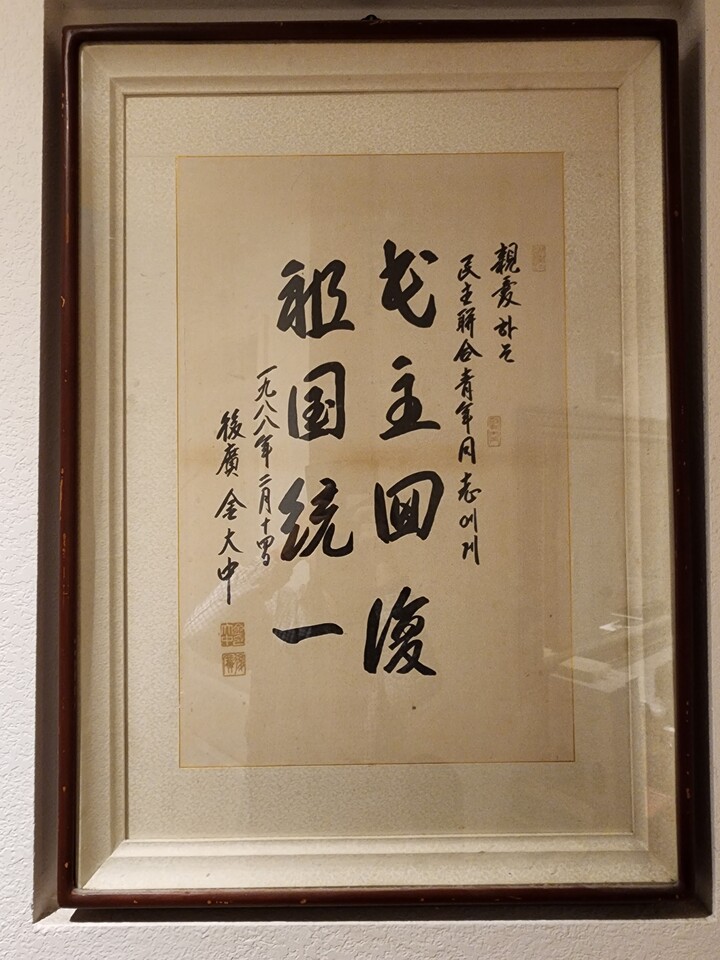 親愛하는
民主聯合青年同志에게
民主回復
祖国統一
一九八八年 二月 十四日
後廣 金大中